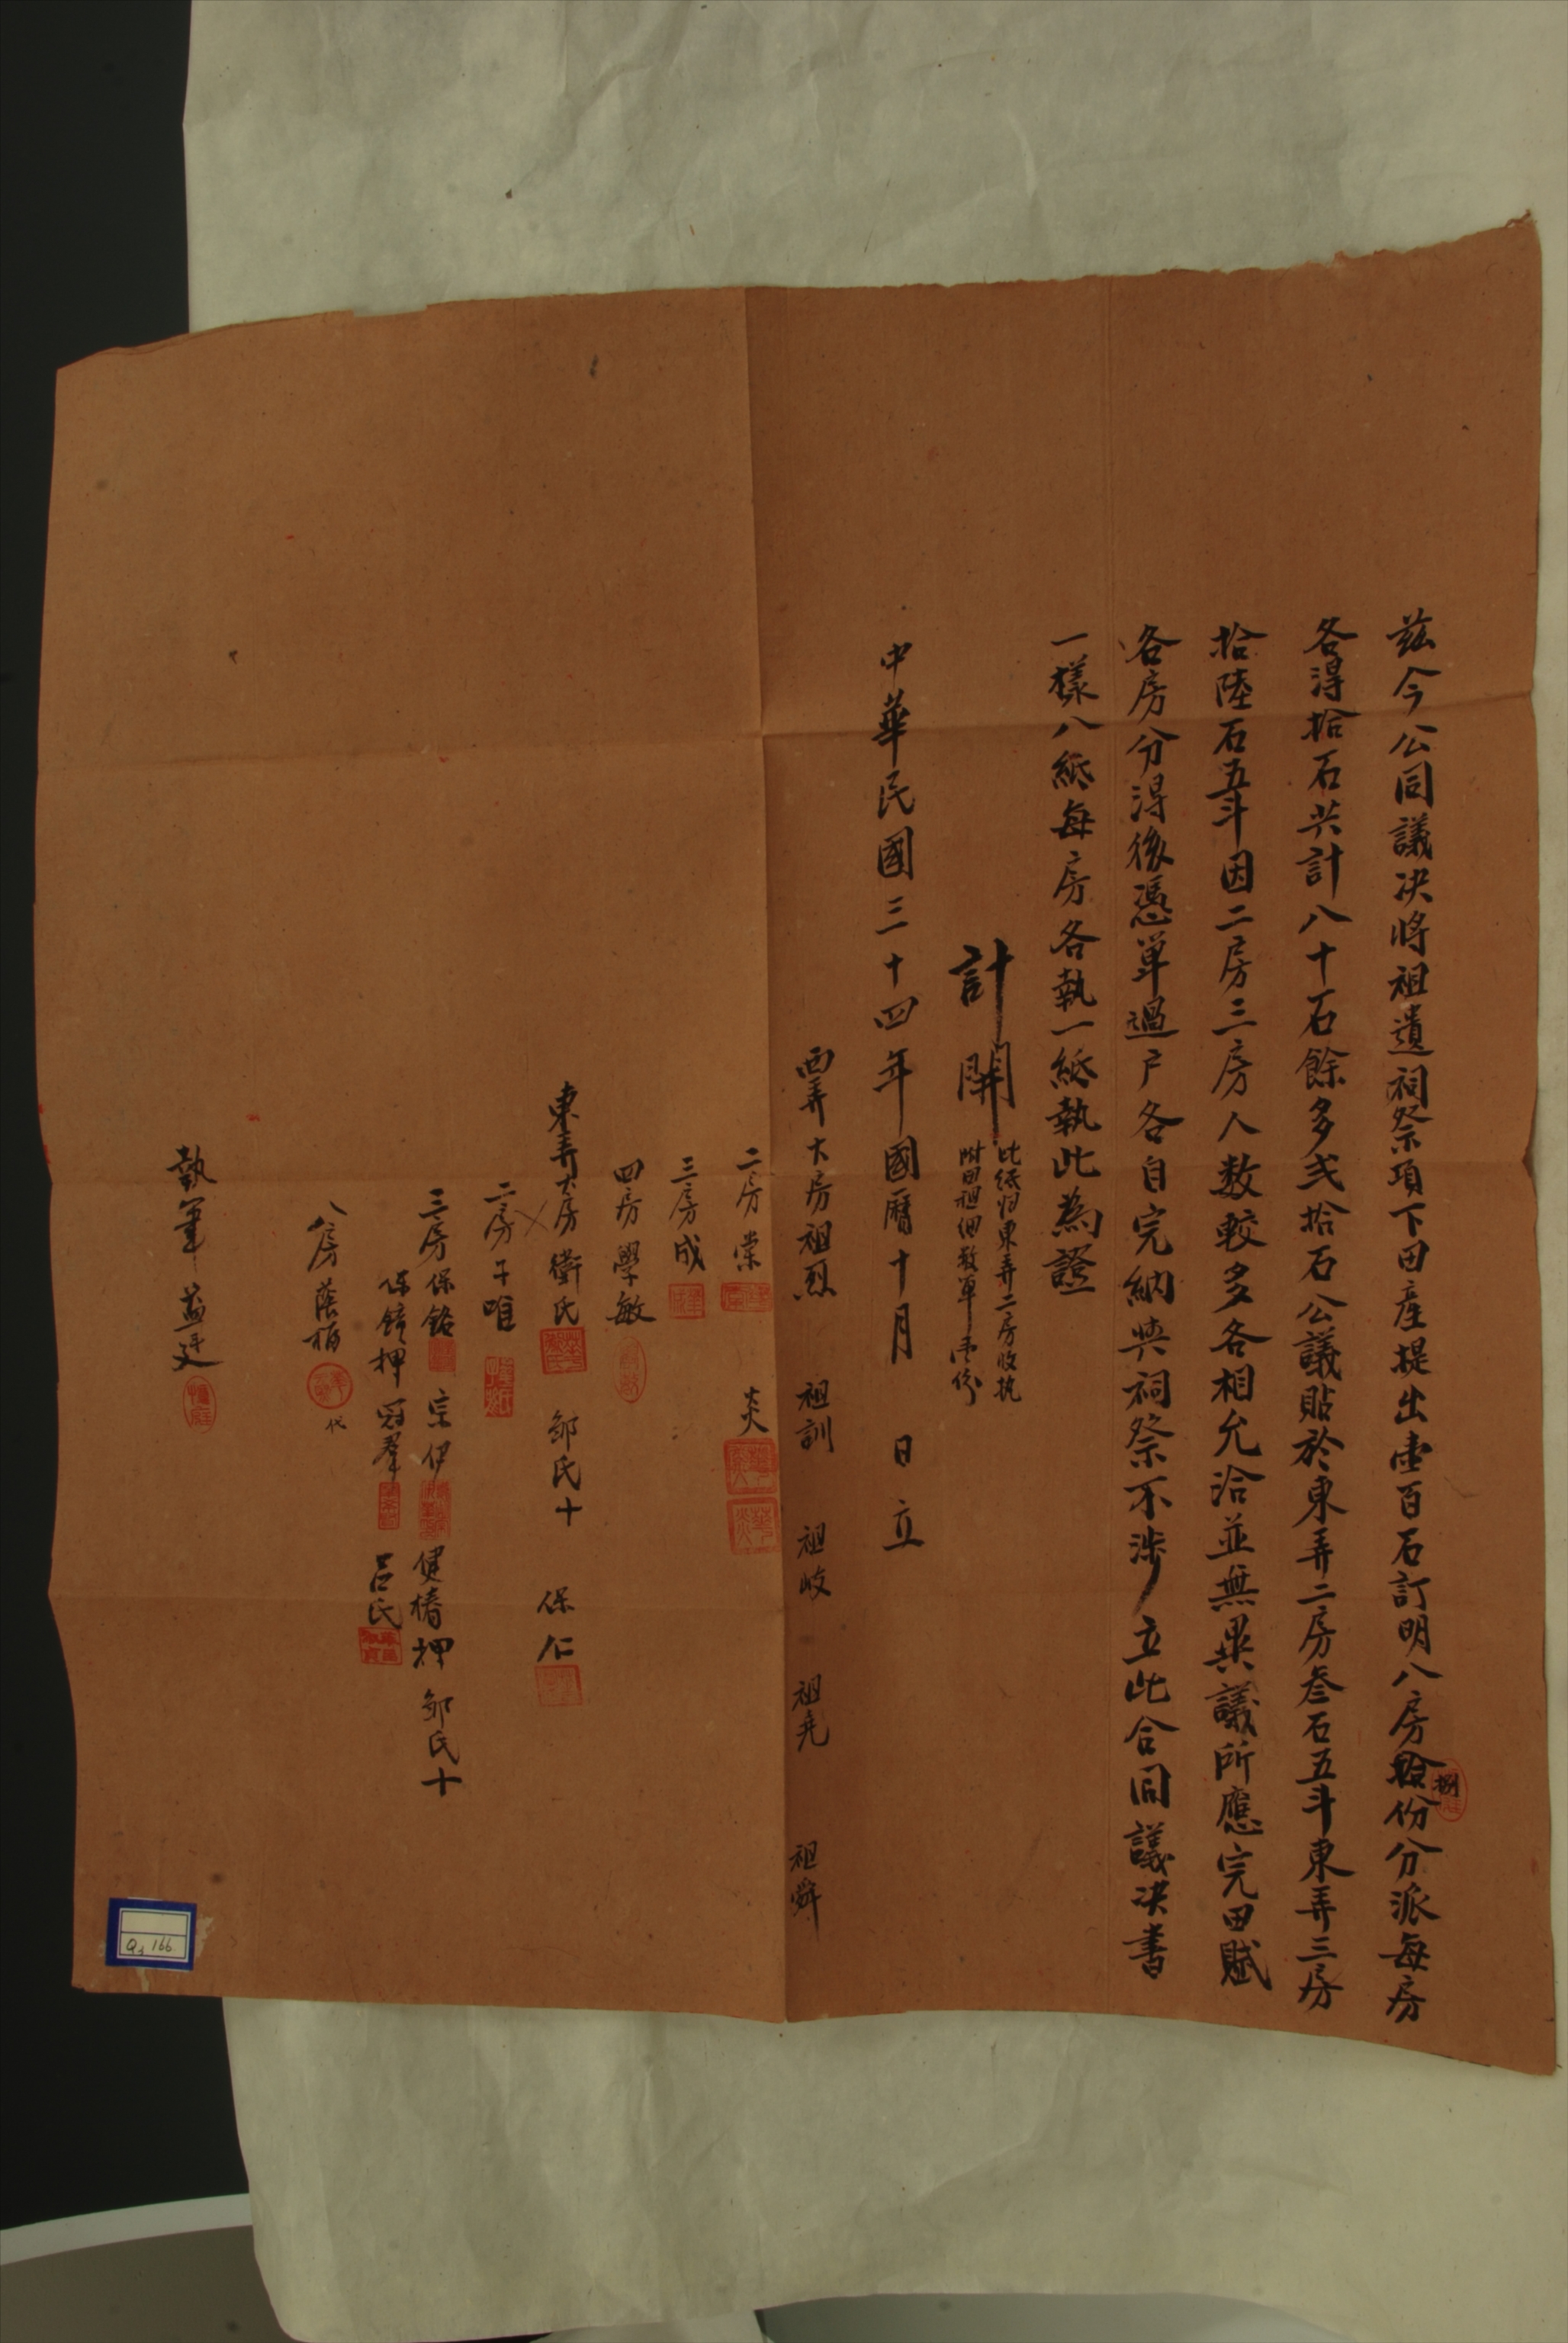 茲今公同議决將祖遺祠祭項下田產提出壷百石訂明八房捌份分派每房
各淂拾石共計八十石餘多弍拾石公議貼於東弄二房叁石五斗東弄三房
拾陸石五斗因二房三房人数較多各相允洽並無異議所應完田賦
各房分淂後憑单過户各自完納與祠祭不涉立此合同議决書
一樣八紙每房各執一紙執此為證
計開
此纸归東弄二房收执
附田祖细数单壹份
中華民國三十四年國曆十月 日立
西弄大房祖烈 祖訓 祖岐 祖堯 祖舜
二房棠 炎
三房成
四房學敏
東弄大房衛氏 邹氏十 保仁
二房子唯
三房保銘 宗伊 健椿押 邹氏十
保鏡押 冠群 呂氏
八房蔭楠 代
執筆 益廷
Q3 166